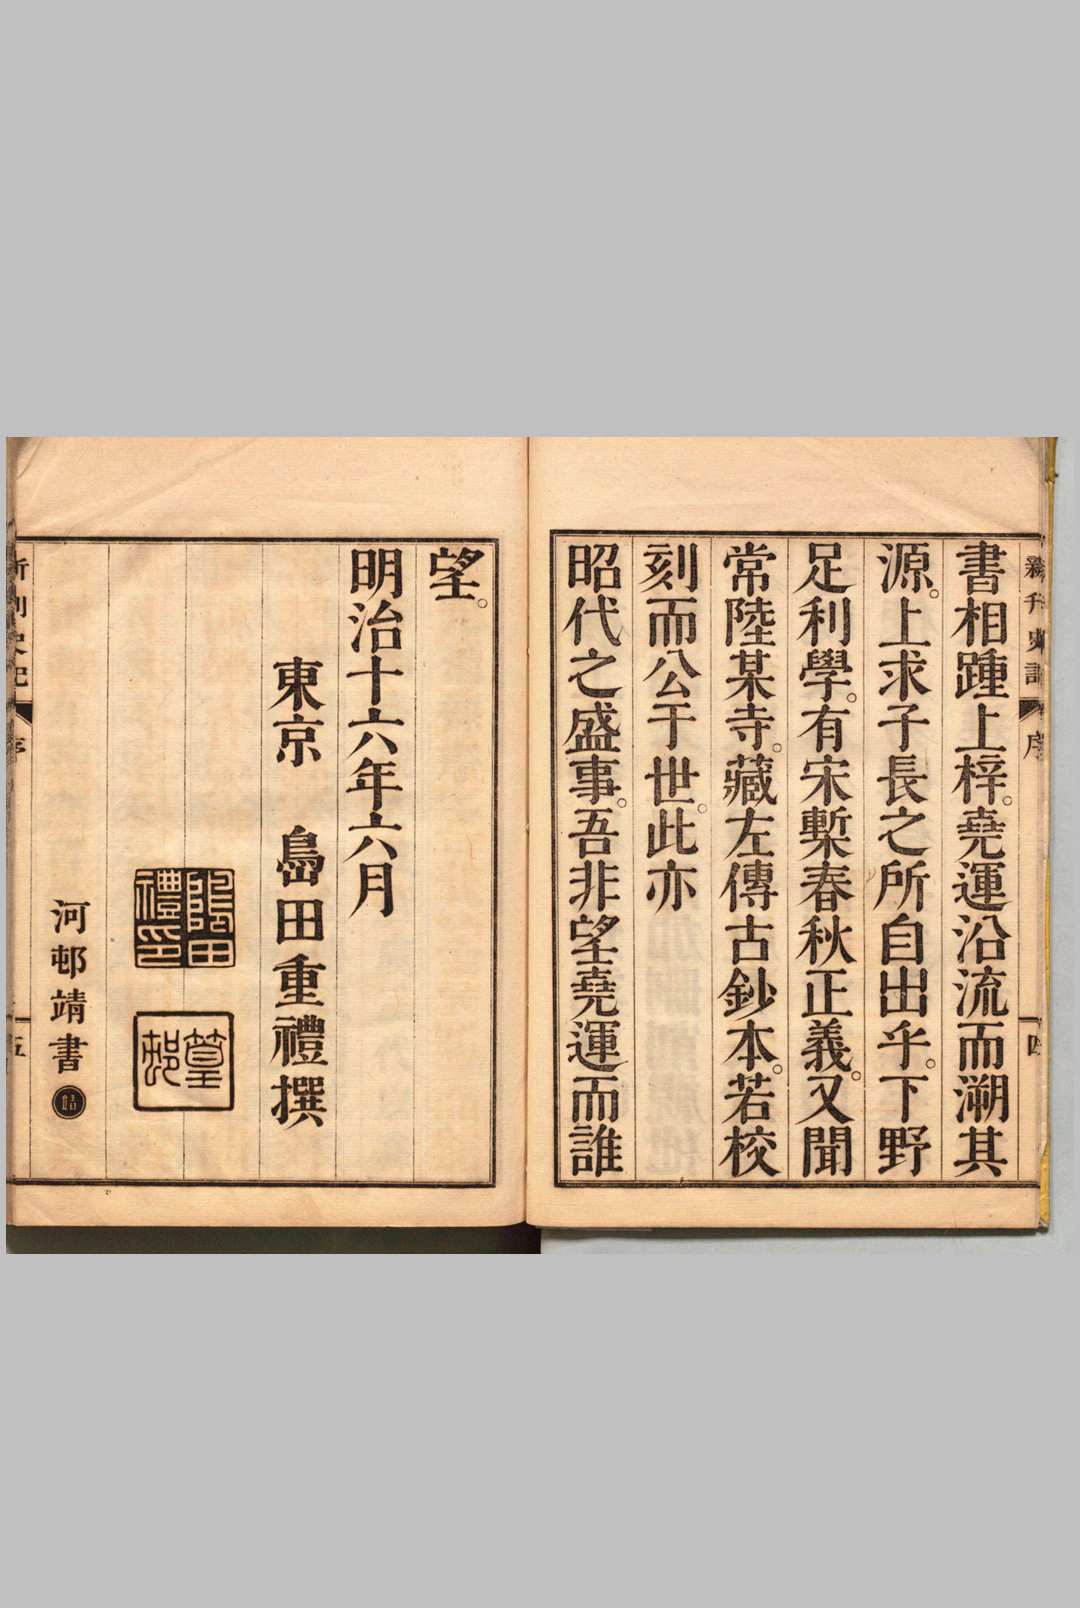 書相踵上梓。堯運沿流而溯其
源。上求子長之所自出乎。下野
足利學。有宋槧春秋正義。又聞
常陸某寺。藏左傳古鈔本。若校
刻而公于世。此亦
昭代之盛事。吾非望堯運而誰
望。
明治十六年六月
東京 島田重禮撰
篁邨
河邨靖書
靖
序
四
五